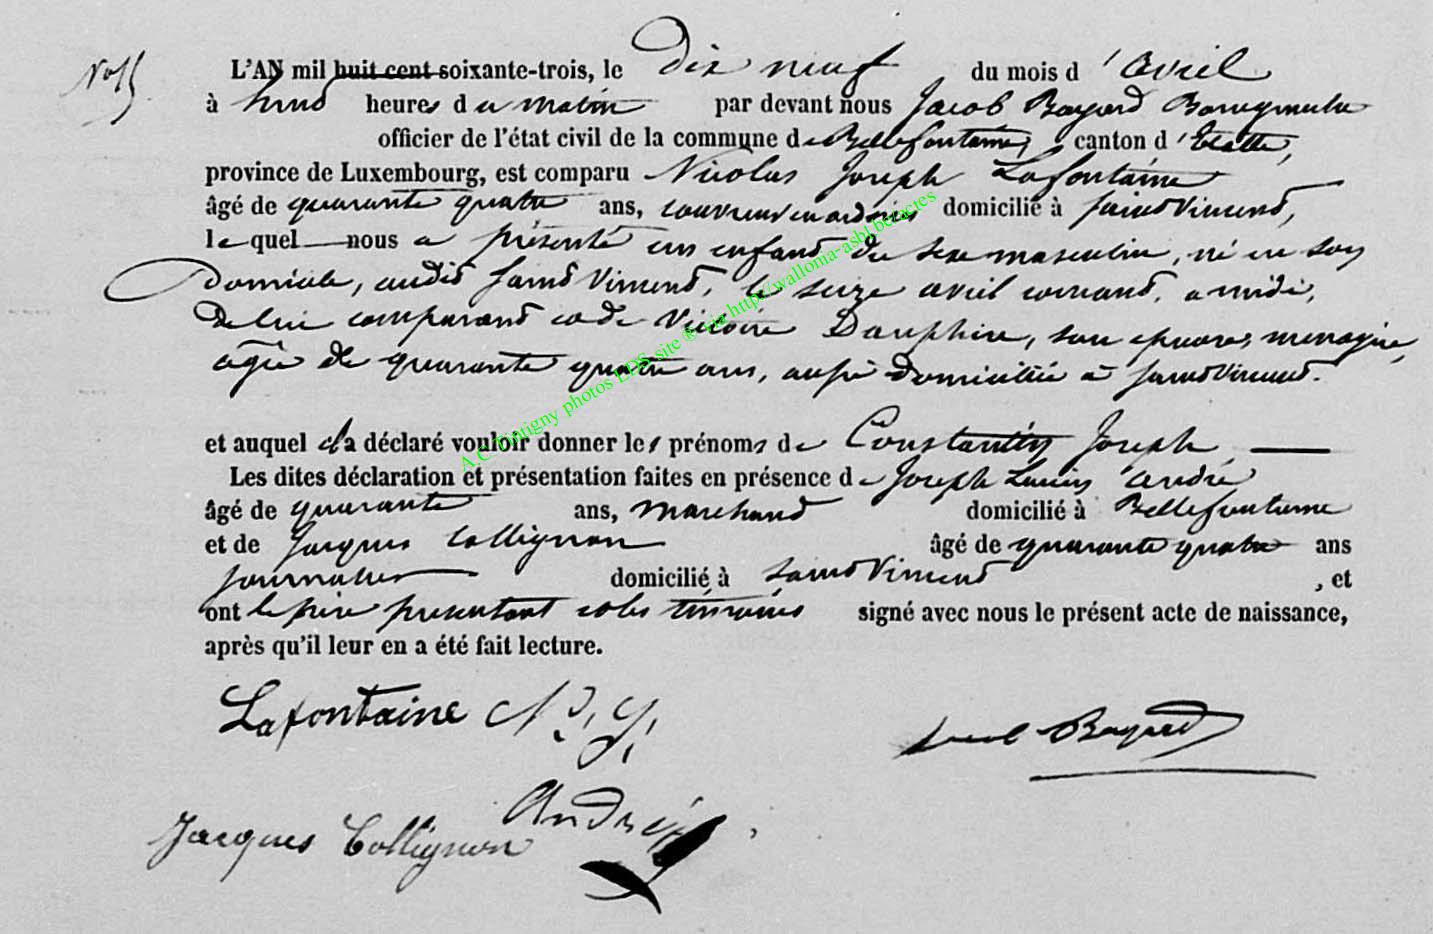 No 15
L'AN mil huit cent soixante-trois, le dix neuf du mois d'avril
à huit heures du matin par devant nous Jacob Bayard Bourgmestre
officier de l'état civil de la commune de Bellefontaine, canton d'Etalle,
province de Luxembourg, est comparu Nicolas Joseph Lafontaine
âgé de quarante quatre ans, couvreur en ardoises domicilié à Saint Vincent,
lequel nous a présenté un enfant du sexe masculin, né en son
Domicile, audit Saint Vincent, le seize avril courant, a midi,
de lui comparant et de Victoire Dauphine, son epouse, menagère,
agée de quarante quatre ans, aussi domiciliée a Saint Vincent.
et auquel il a déclaré vouloir donner les prénoms de Constantin Joseph
Les dites déclaration et présentation faites en présence de Joseph Lucien André
âgé de quarante ans, marchand domicilié à Bellefontaine
et de Jacques Collignon âgé de quarante quatre ans
journalier domicilié à Saint Vincent, et
ont le père presentant et les témoins signé avec nous le présent acte de naissance,
après qu'il leur en a été fait lecture.
Lafontaine N. J.
Jacob Bayard
André
Jacques Collignon
A.C. Tintigny photos EDS site via http://walloma-asbl.be/actes